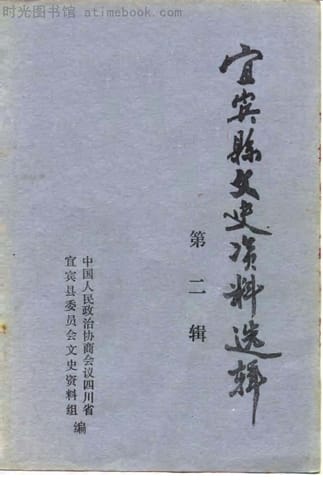 时光图书馆 atimebook.com
宜宾縣文史资料选辑
第二辑
中国人民政治协商会议四川省
宜宾县委员会文史资料组
编